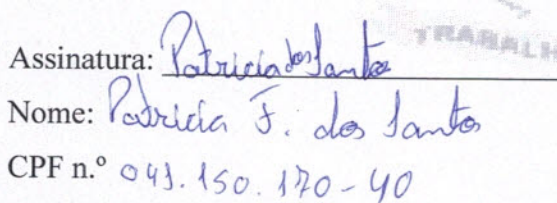 TRABALH
Assinatura: Patricia dos Santos
Nome: Patricia F. dos Santos
CPF n.º 041.150.170-40